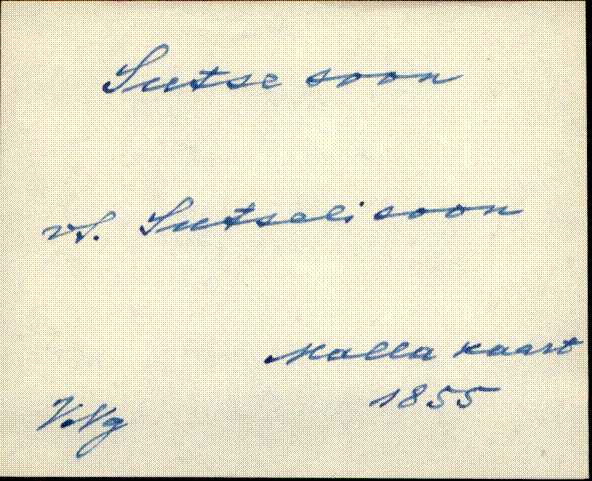 Sutse soon
vt. Sutseli soon
Malla kaart
1855
V.Ng